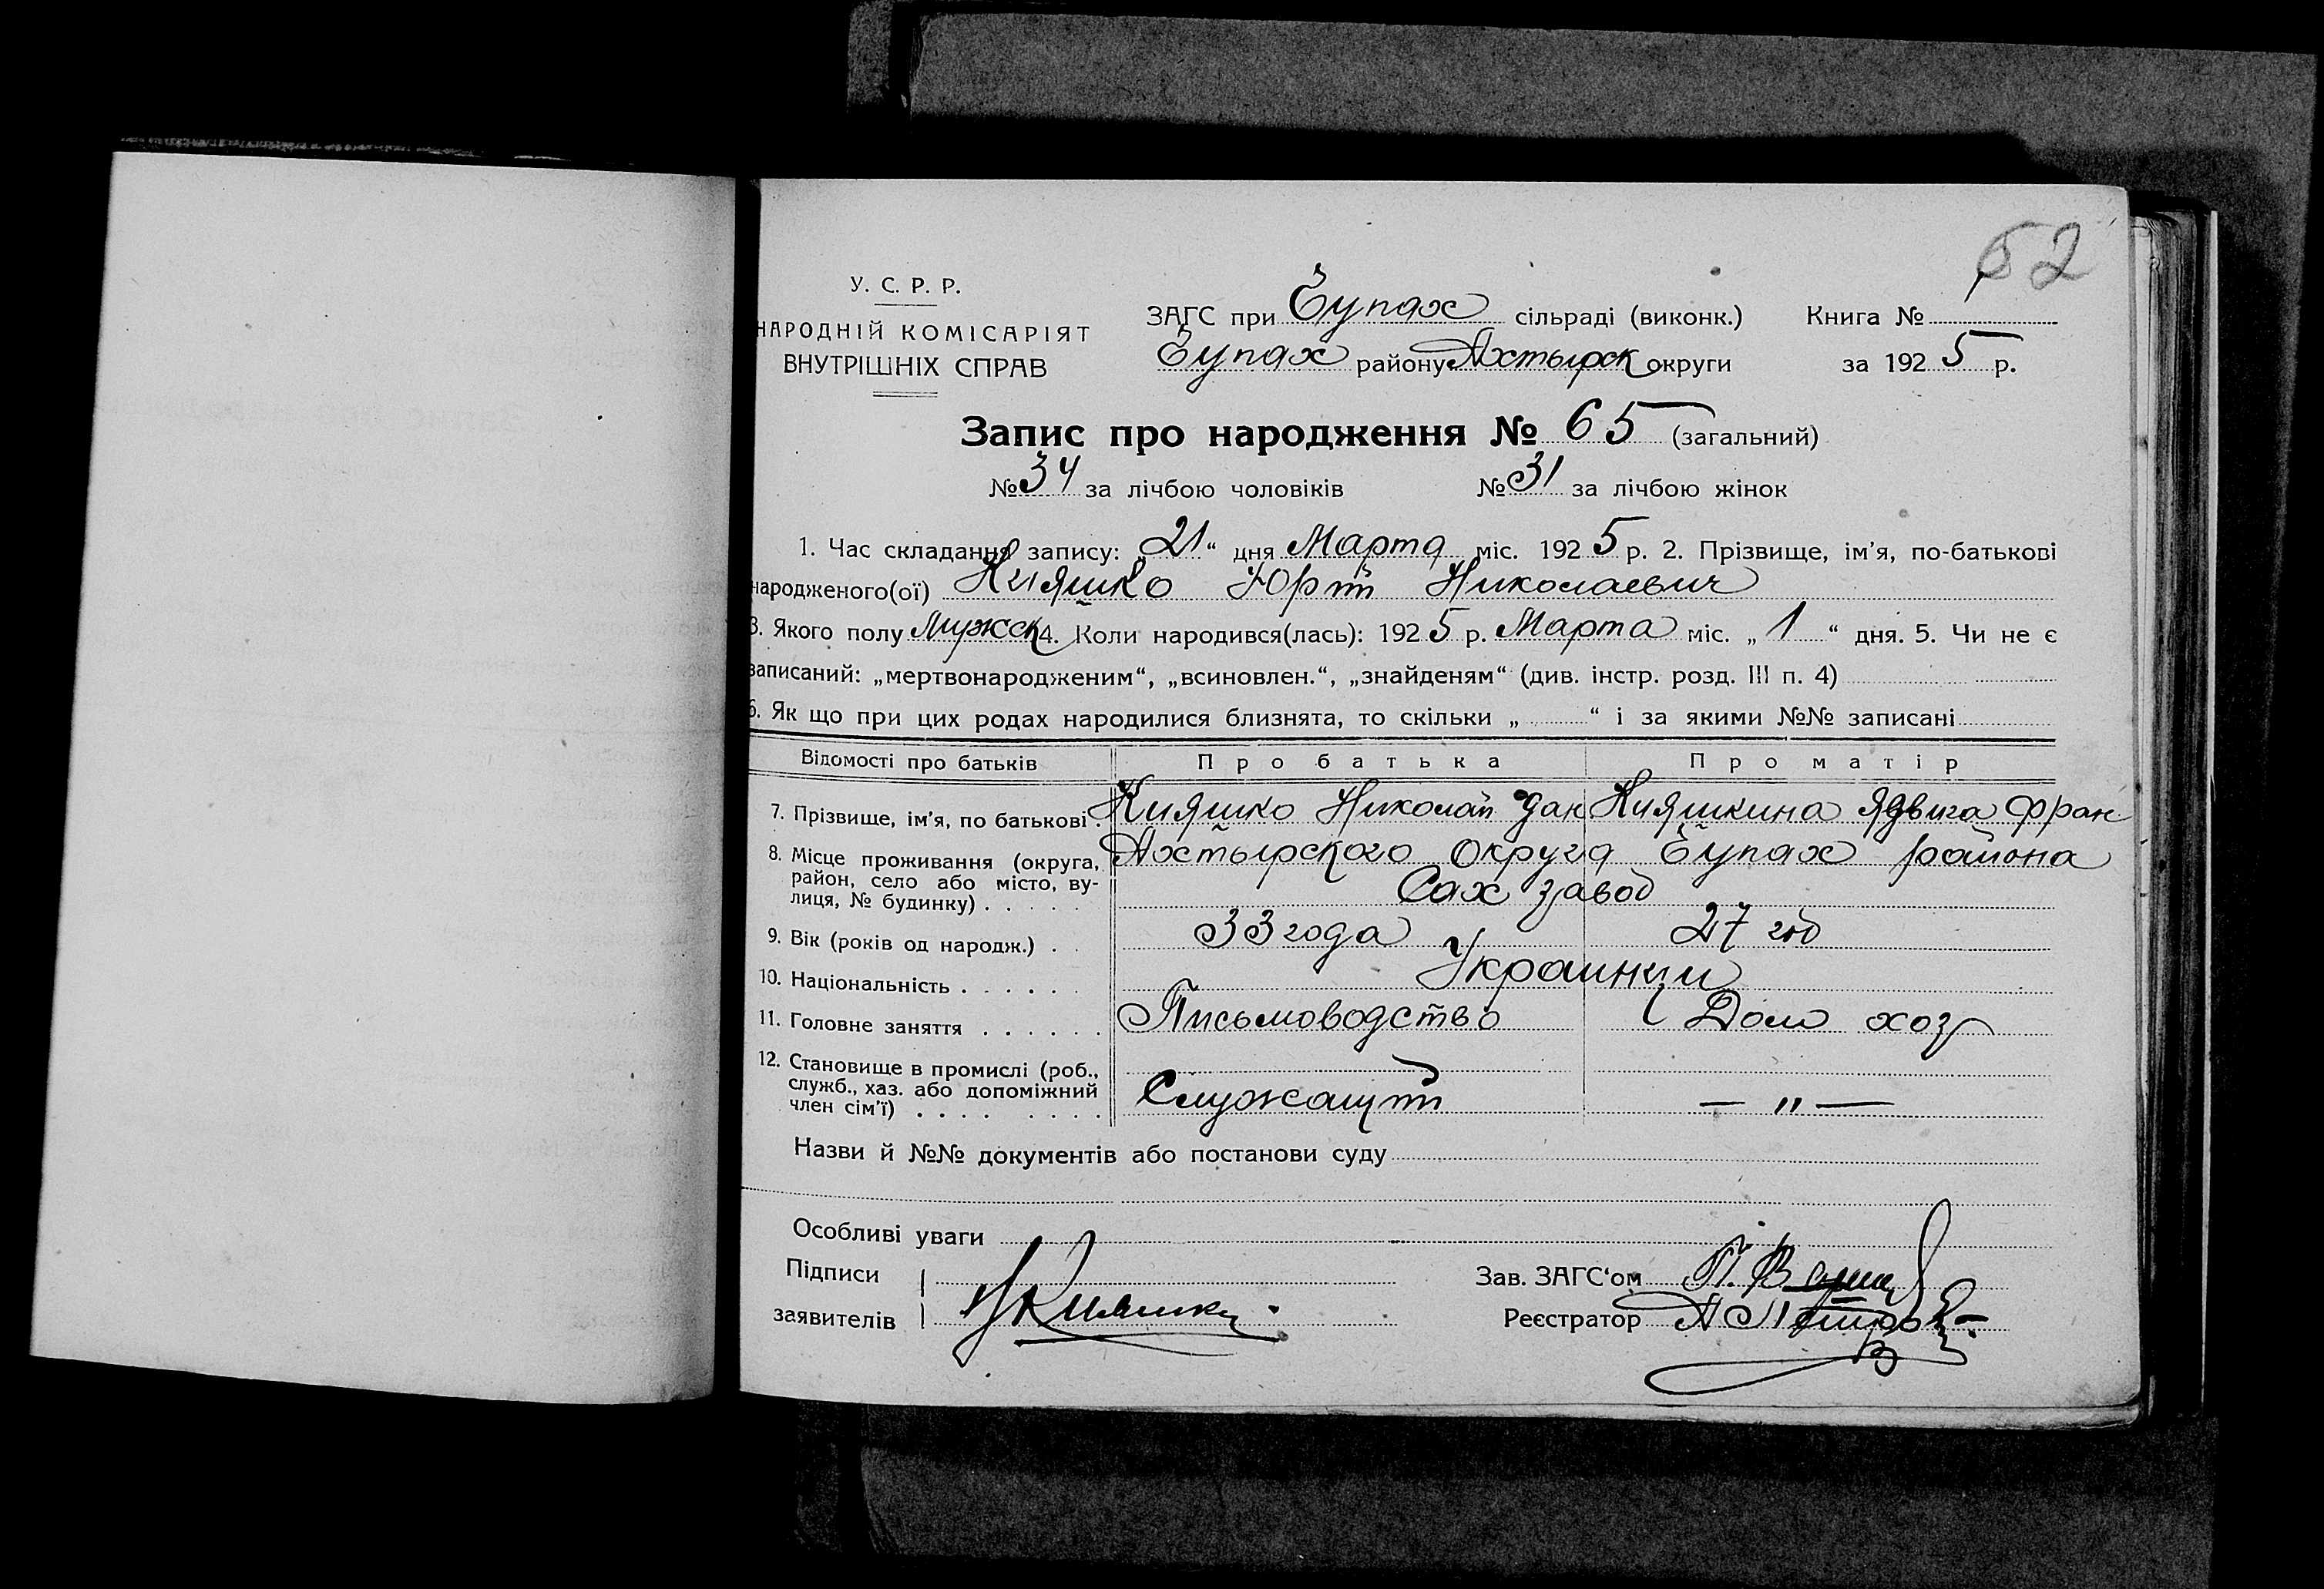 52
У. С. Р. Р.
НАРОДНІЙ КОМІСАРІЯТ
ВНУТРІШНІХ СПРАВ
ЗАГС при Чупах сільраді (виконк.) Книга №
Чупах району Ахтырск округи за 1925 р.
Запис про народження № 65 (загальний)
№ 34 за лічбою чоловіків № 31 за лічбою жінок
1. Час складання запису: „21“ дня Марта міс. 1925 р. 2. Прізвище, ім’я, по-батькові
народженого(ої) Кияшко Юрий Николаевич
3. Якого полу Мужск 4. Коли народився(лась): 1925 р. Марта міс. „1“ дня. 5. Чи не є
записаний: „мертвонародженим“, „всиновлен.“, „знайденям“ (див. інстр. розд. III п. 4)
6. Як що при цих родах народилися близнята, то скільки „ “ і за якими №№ записані
Відомості про батьків Про батька Про матір
7. Прізвище, ім’я, по батькові . Кияшко Николай Дан Кияшкина Ядвига Фран
8. Місце проживання (округа, район, село або місто, вулиця, № будинку) . . . . . Ахтырского Округа Чупах района
Сах завод
9. Вік (років од народж.) . 33 года 27 год
10. Національність . . . . . . Украинци
11. Головне заняття . . . . . . Письмоводство Дом хоз
12. Становище в промислі (роб.,
служб., хаз. або допоміжний
член сім’ї) . . . . . . . . Служащий — „ —
Назви й №№ документів або постанови суду
Особливі уваги
Підписи
заявителів Н Кияшко
Зав. ЗАГС‘ом
Реєстратор